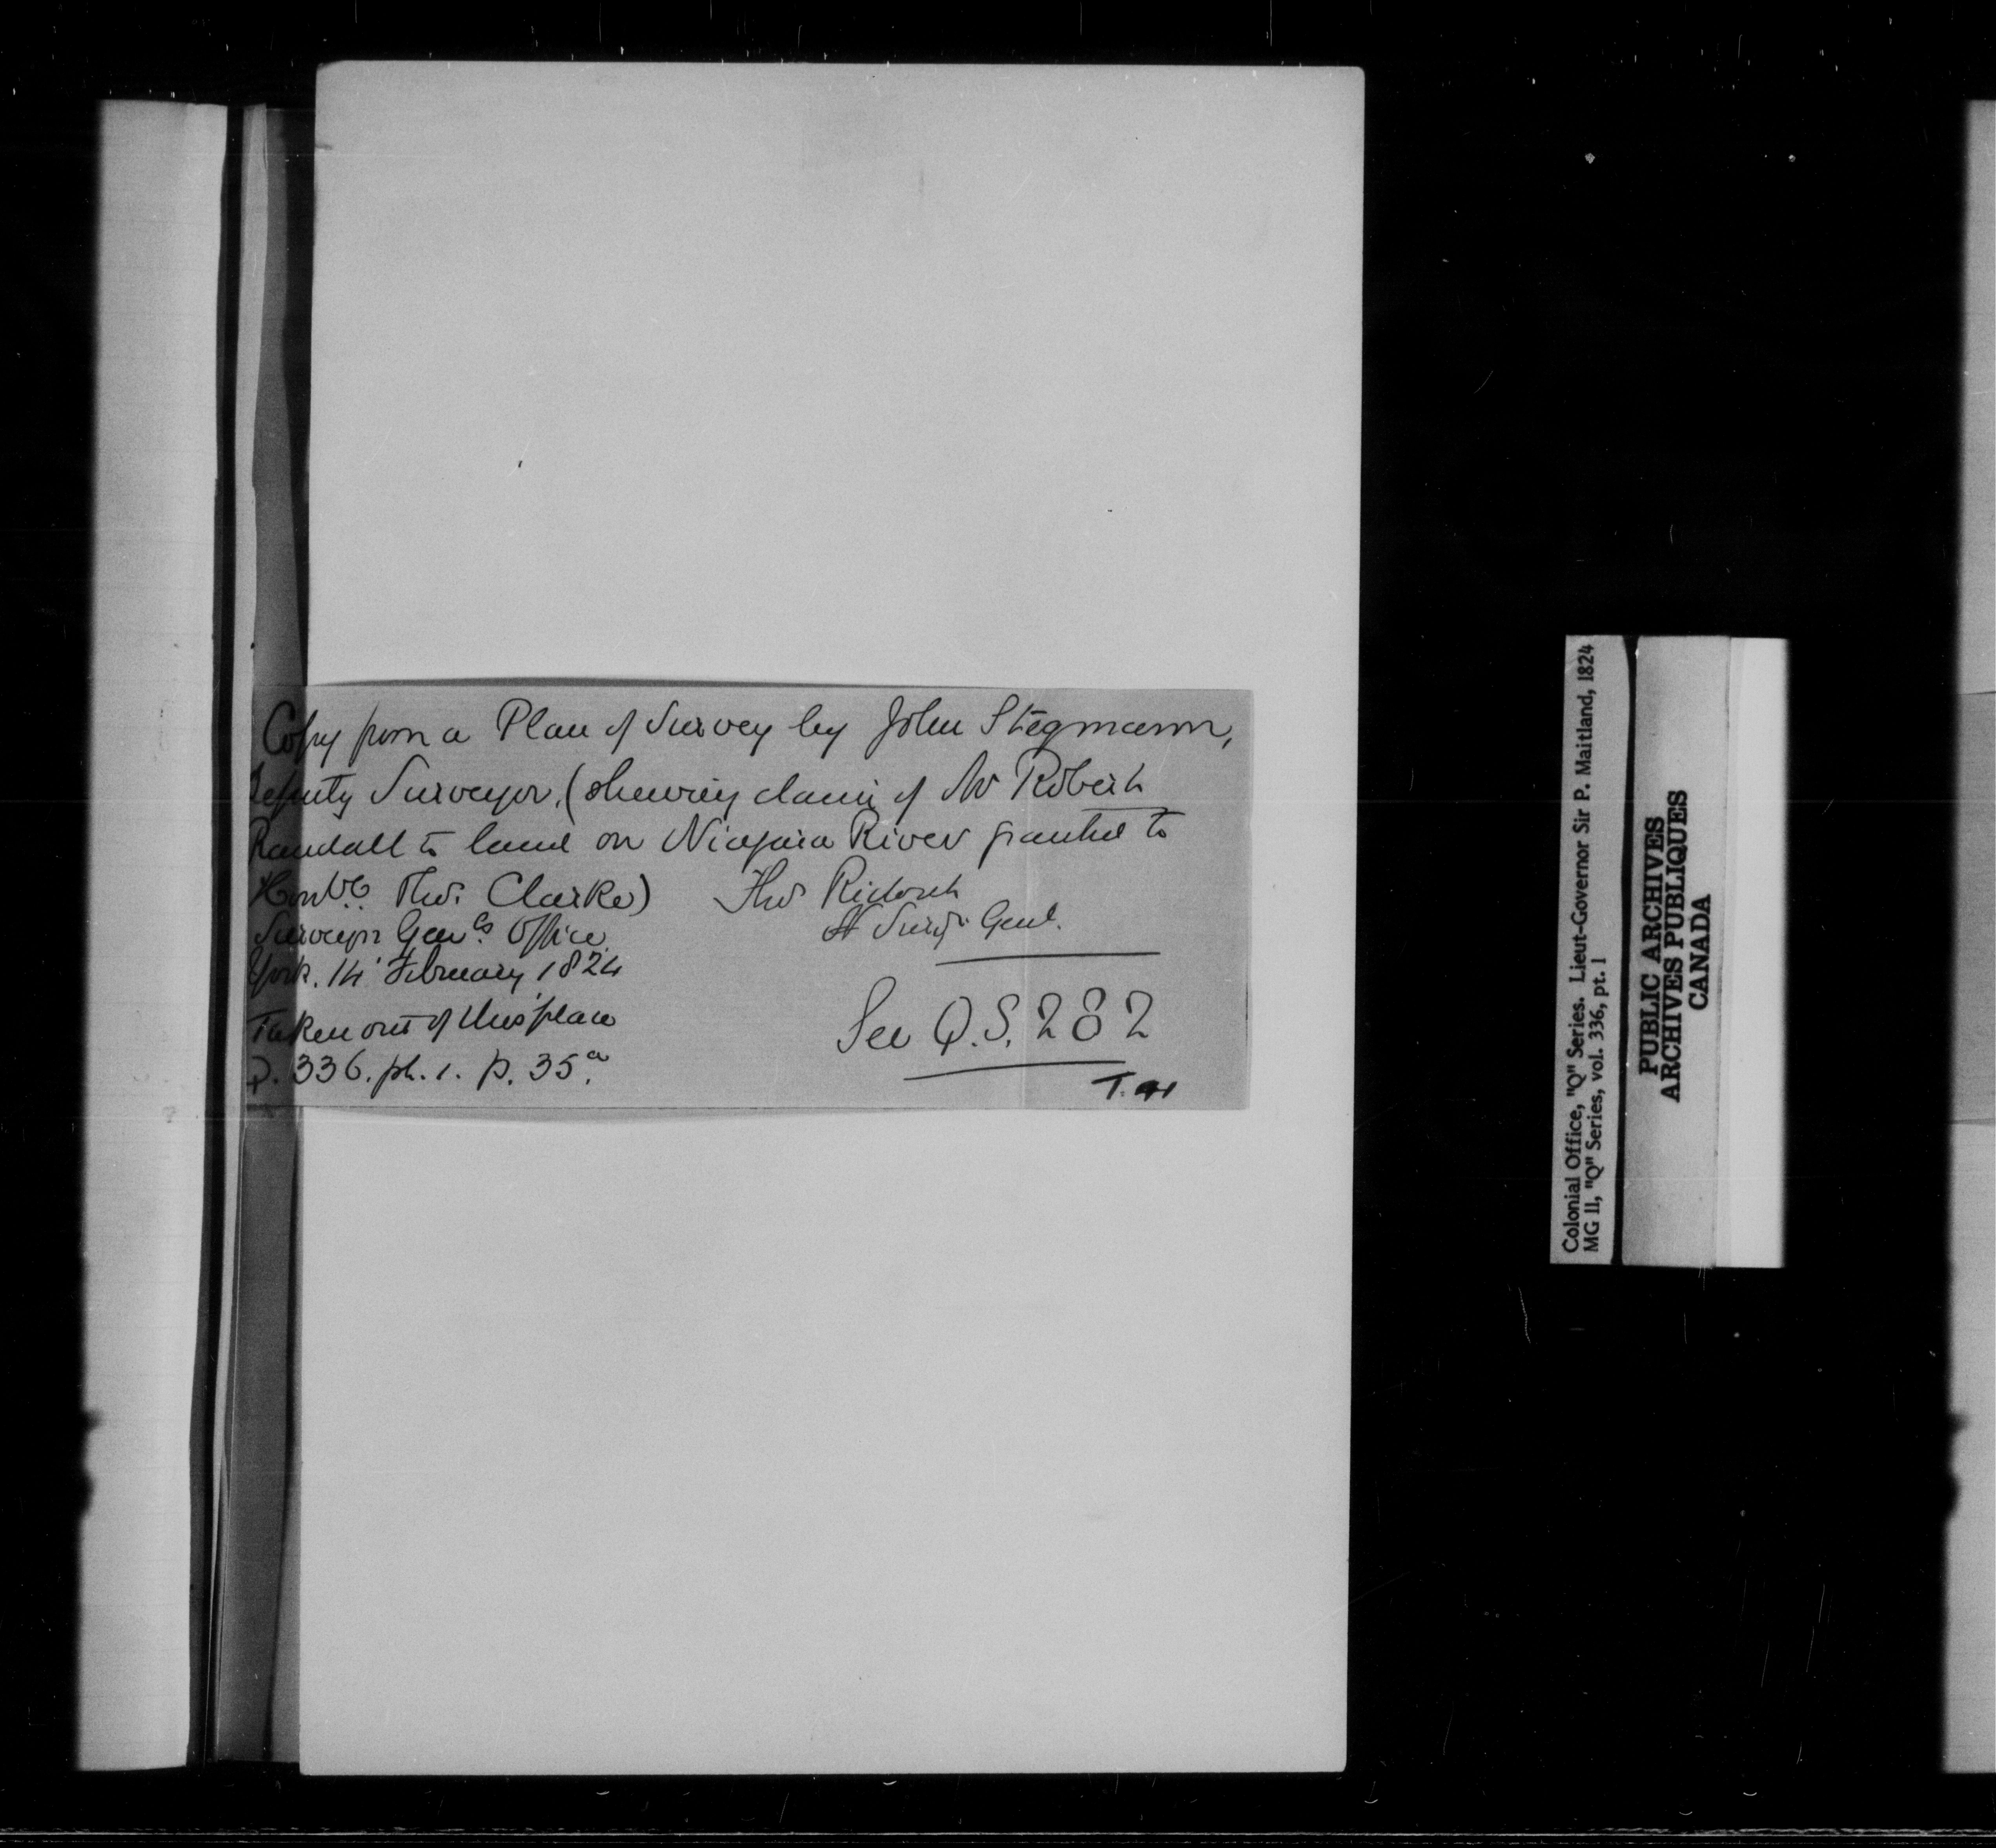 Copy from a Plan of Survey by John Stegmann,
Deputy Surveyor, (shewing claim of Mr Robert
Randall to land on Niagara River granted to
Honble. Thos. Clarke) Thos Ridout
Surveyor Genls. Office Surv. Genl.
York. 14 February 1824
Taken out of this place See Q.S. 282
Q. 336. pt. 1. p. 35a.
Colonial Office, "Q" Series. Lieut-Governor Sir P. Maitland, 1824
MG 11, "Q" Series, vol. 336, pt. 1
PUBLIC ARCHIVES
ARCHIVES PUBLIQUES
CANADA